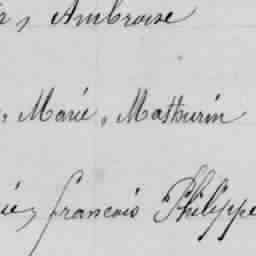 , Ambroise
, Marie, Mathurin
ie, francois Philippe